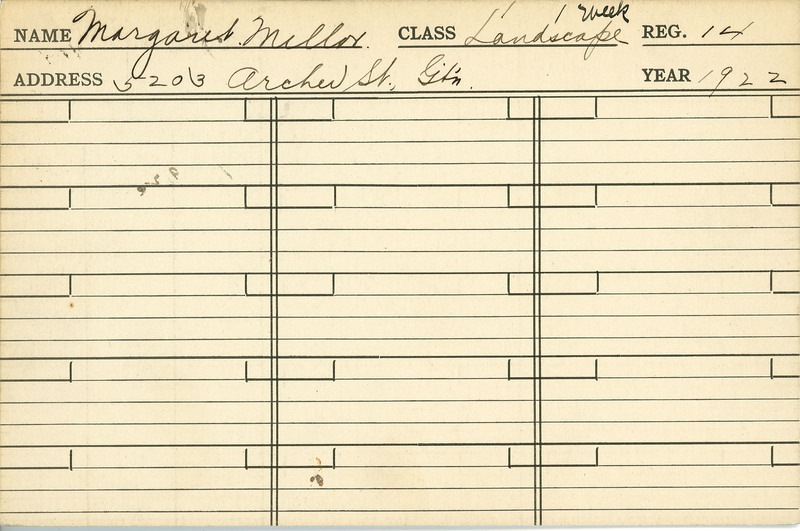 1 week
NAME Margaret Mellor. CLASS Landscape REG. 14
ADDRESS 5203 Archer St., Gt'n. YEAR 1922